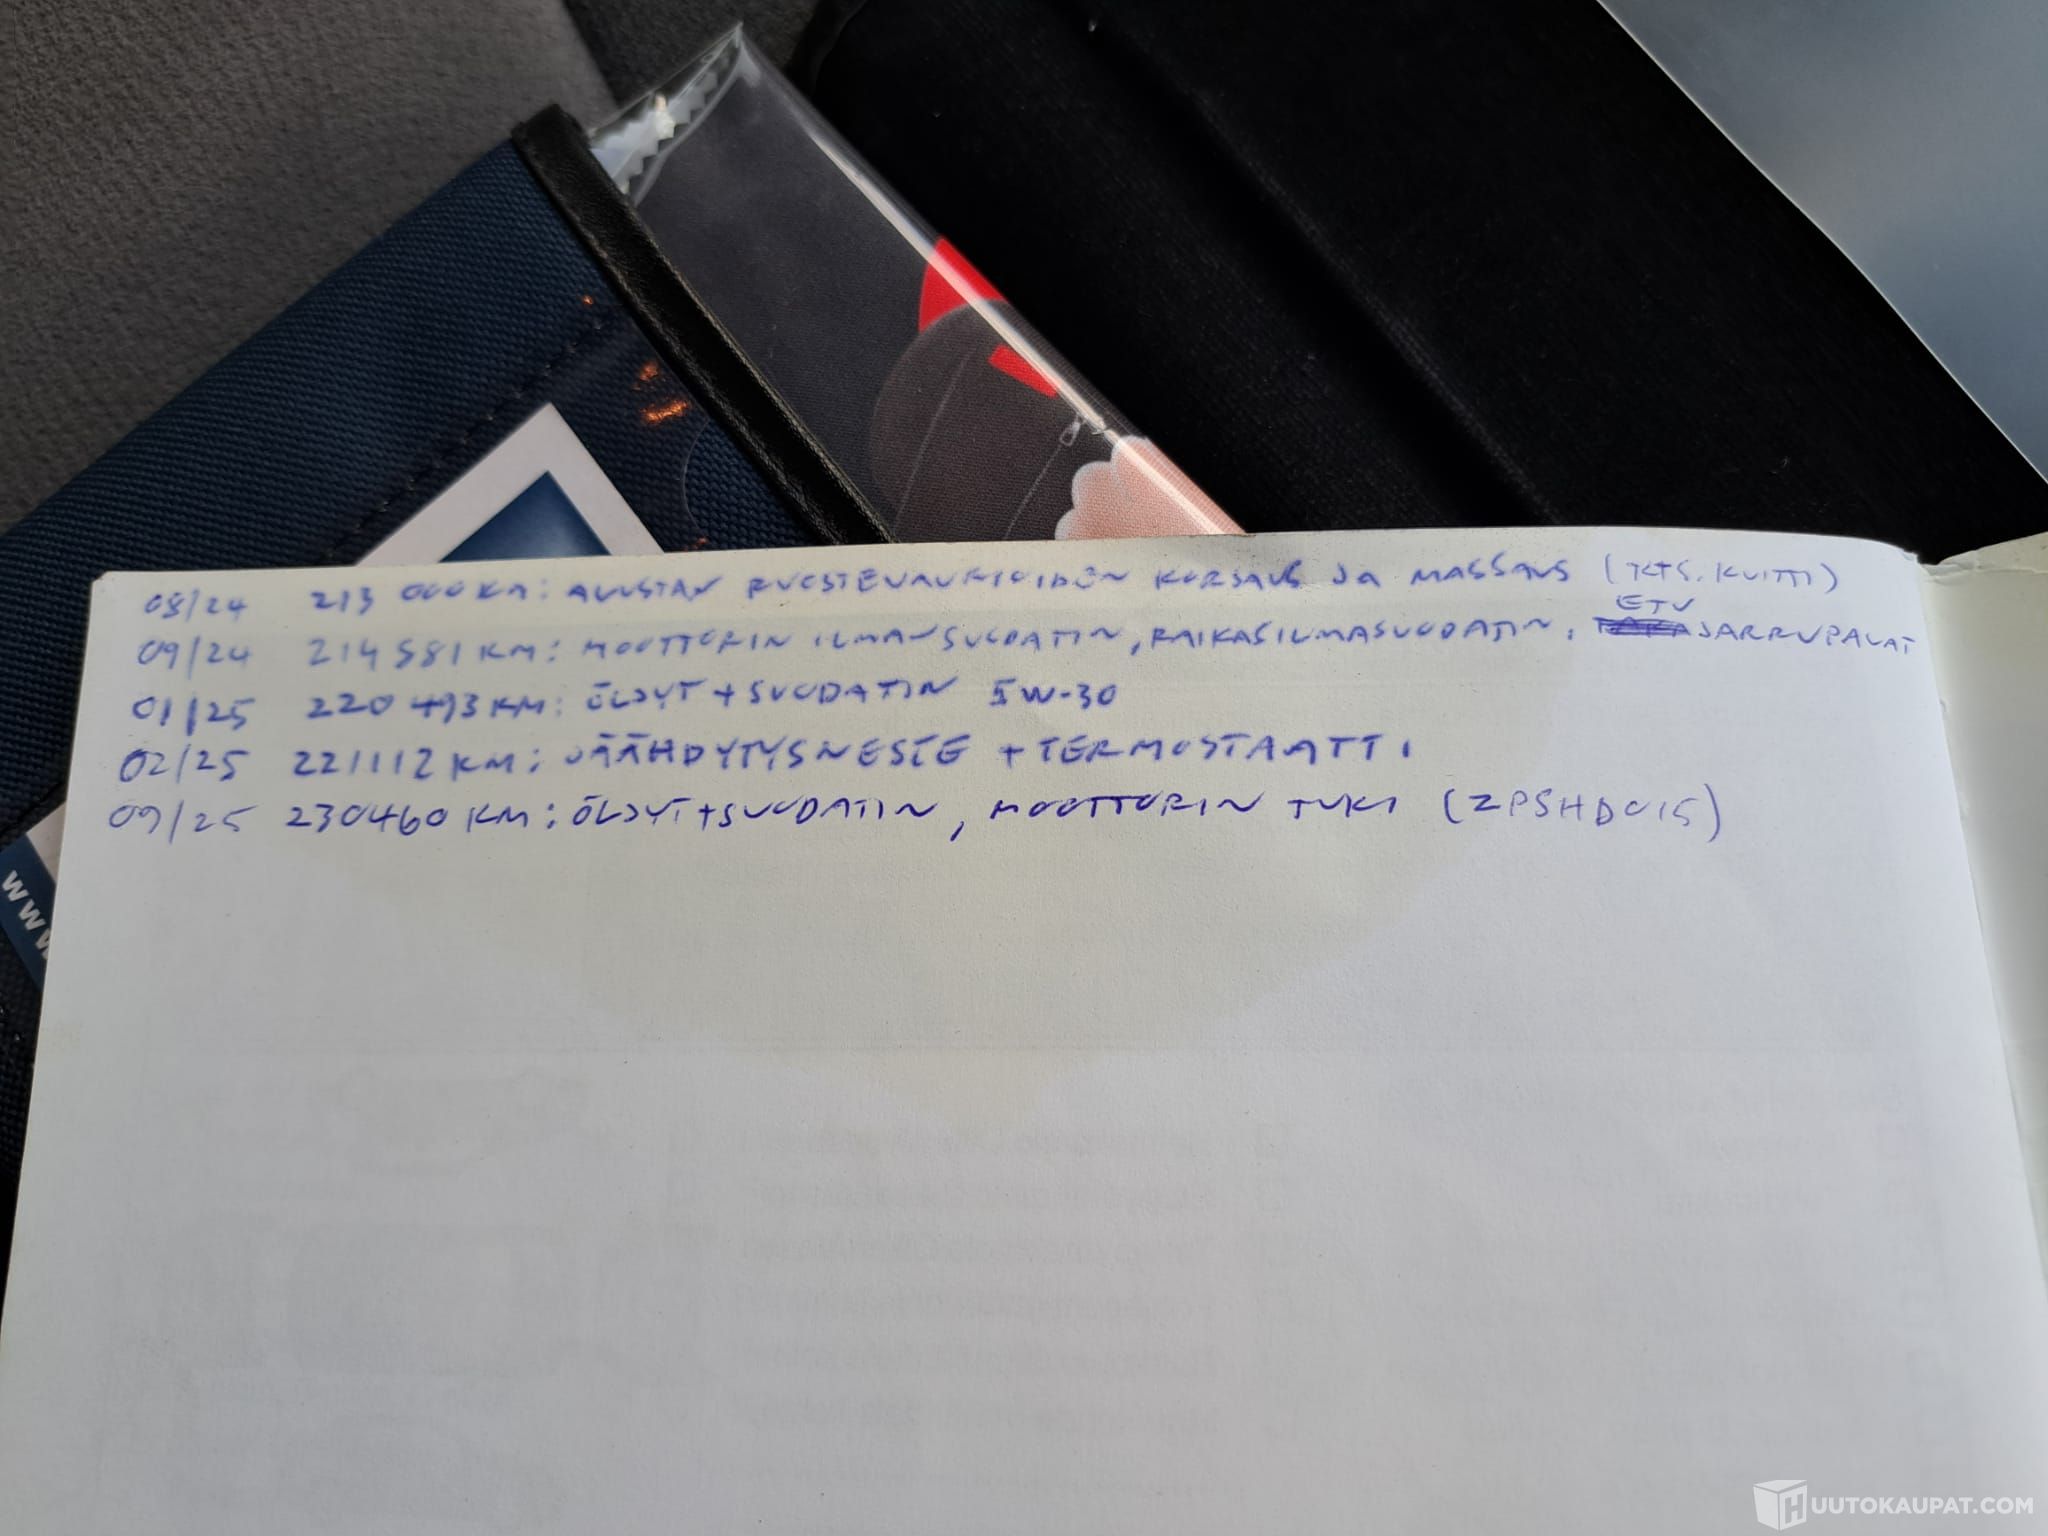 08/24 213 000 KM: ALUSTAN RUOSTEVAURIOIDEN KORJAUS JA MASSAUS (KTS. KUITTI)
ETU
09/24 214 581 KM: MOOTTORIN ILMANSUODATIN, RAIKASILMASUODATIN, JARRUPALAT
01/25 220 493 KM: ÖLJYT + SUODATIN 5W-30
02/25 221112 KM: JÄÄHDYTYSNESTE + TERMOSTAATTI
09/25 230460 KM: ÖLJYT+SUODATIN, MOOTTORIN TUKI (ZPSHD015)
WWW
HUUTOKAUPAT.COM